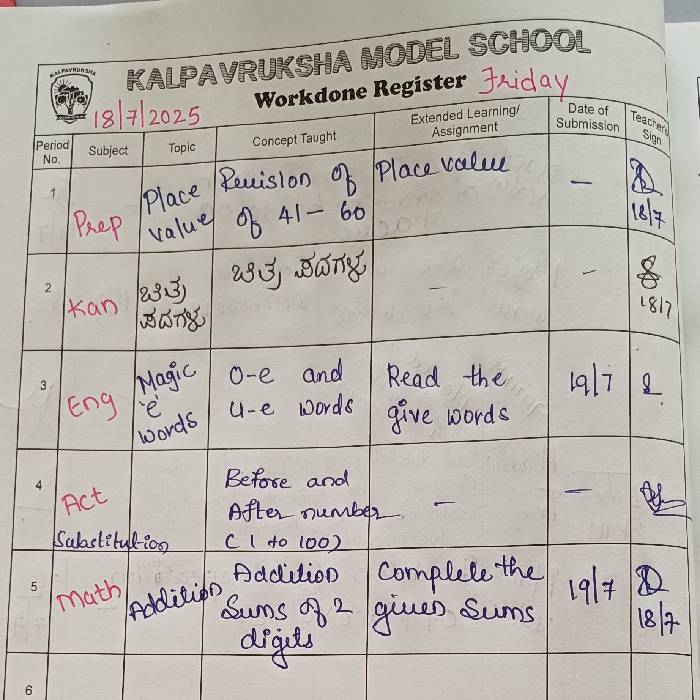 KALPAVRUKSHA
KALPAVRUKSHA MODEL SCHOOL
Workdone Register Friday
18/7/2025
Period No. Subject Topic Concept Taught Extended Learning/ Assignment Date of Submission Teacher's Sign
1 Prep Place value Revision of Place value of 41 - 60 Place value - 18/7
2 Kan ಚಿತ್ರ ಪದಗಳು ಚಿತ್ರ ಪದಗಳು - - 18/7
3 Eng Magic 'e' words O-e and u-e words Read the give words 19/7
4 Act Substitution Before and After number (1 to 100) - -
5 Math Addition Addition Sums of 2 digits Complete the given Sums 19/7 18/7
6